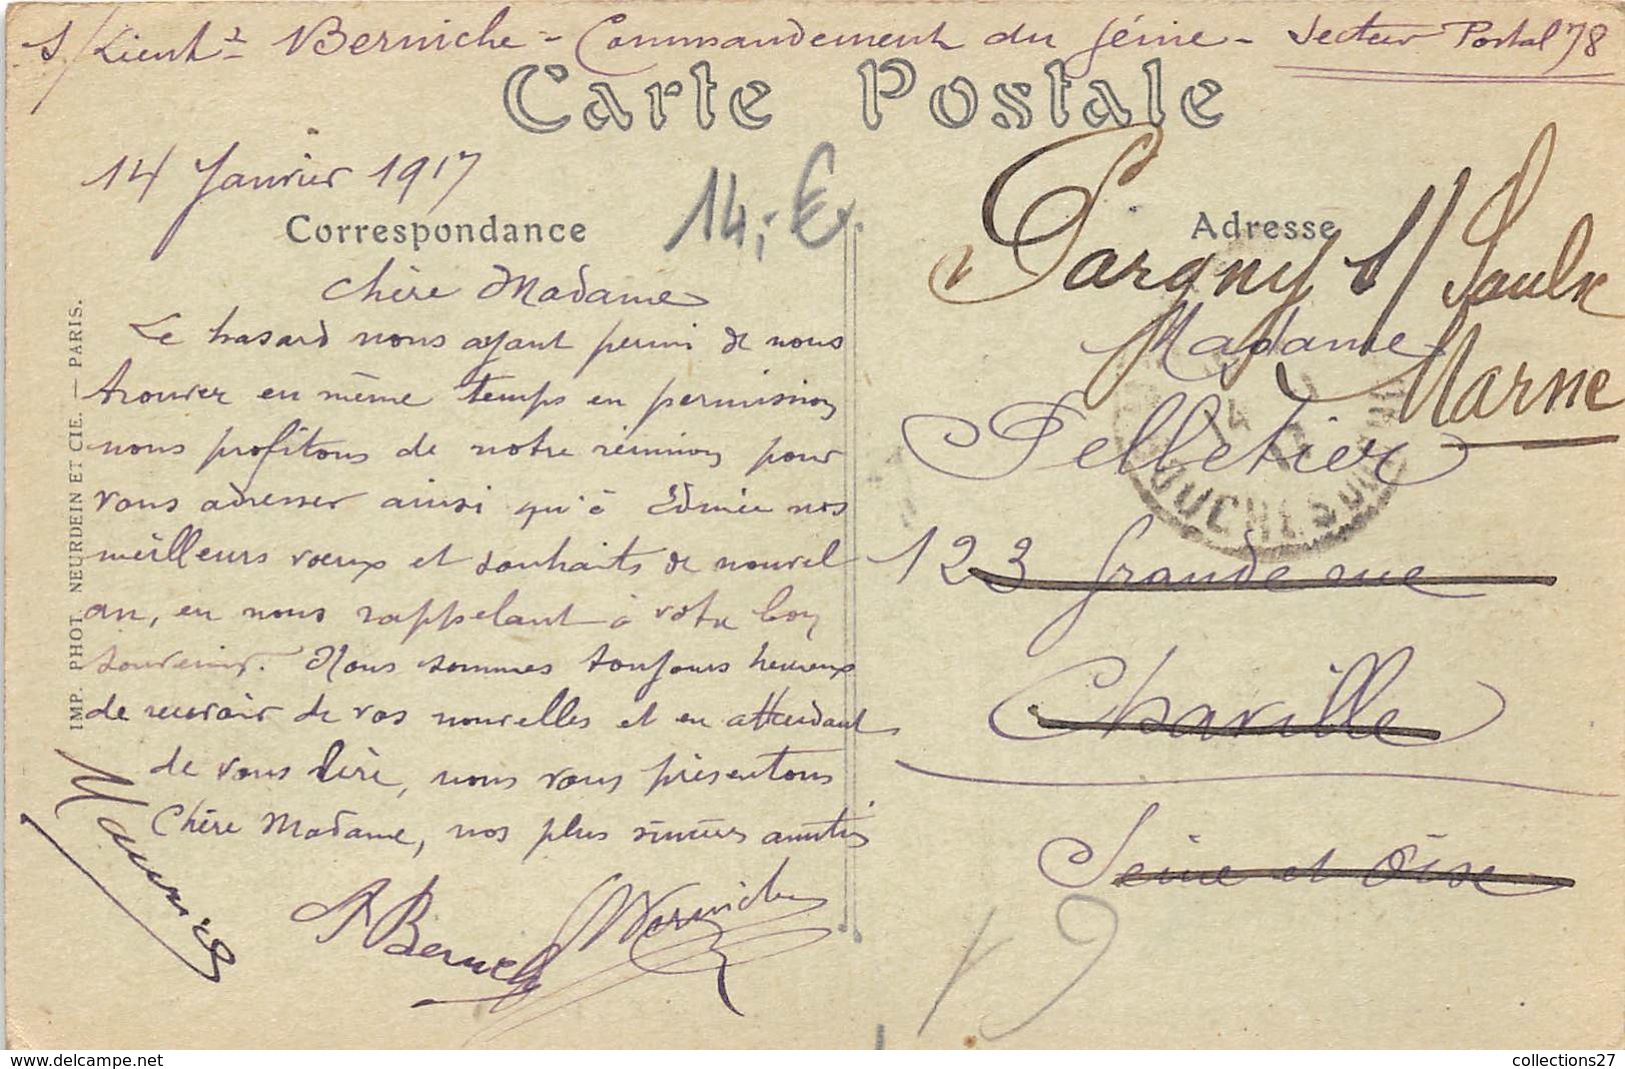 S/Lieut.t Berniche - Commandement du Génie - Secteur Postal 78
Carte Postale
14 Janvier 1917
Correspondance
14,- €
Adresse
Chère Madame
Le hasard nous ayant permi de nous
trouver en même temps en permission
nous profitons de notre réunion pour
vous adresser ainsi qu'à Edmée nos
meilleurs voeux et souhaits de nouvel
an, en nous rappelant à votre bon
souvenir. Nous sommes toujours heureux
de recevoir de vos nouvelles et en attendant
de vous lire, nous vous présentons
Chère Madame, nos plus sincères amitiés
Maurice
A Berniche
Berniche
Pargny s/ Saulx
Marne
Madame
Pelletier
123 Grande rue
Chaville
Seine et Oise
IMP. PHOT. NEURDEIN ET CIE. — PARIS.
collections27